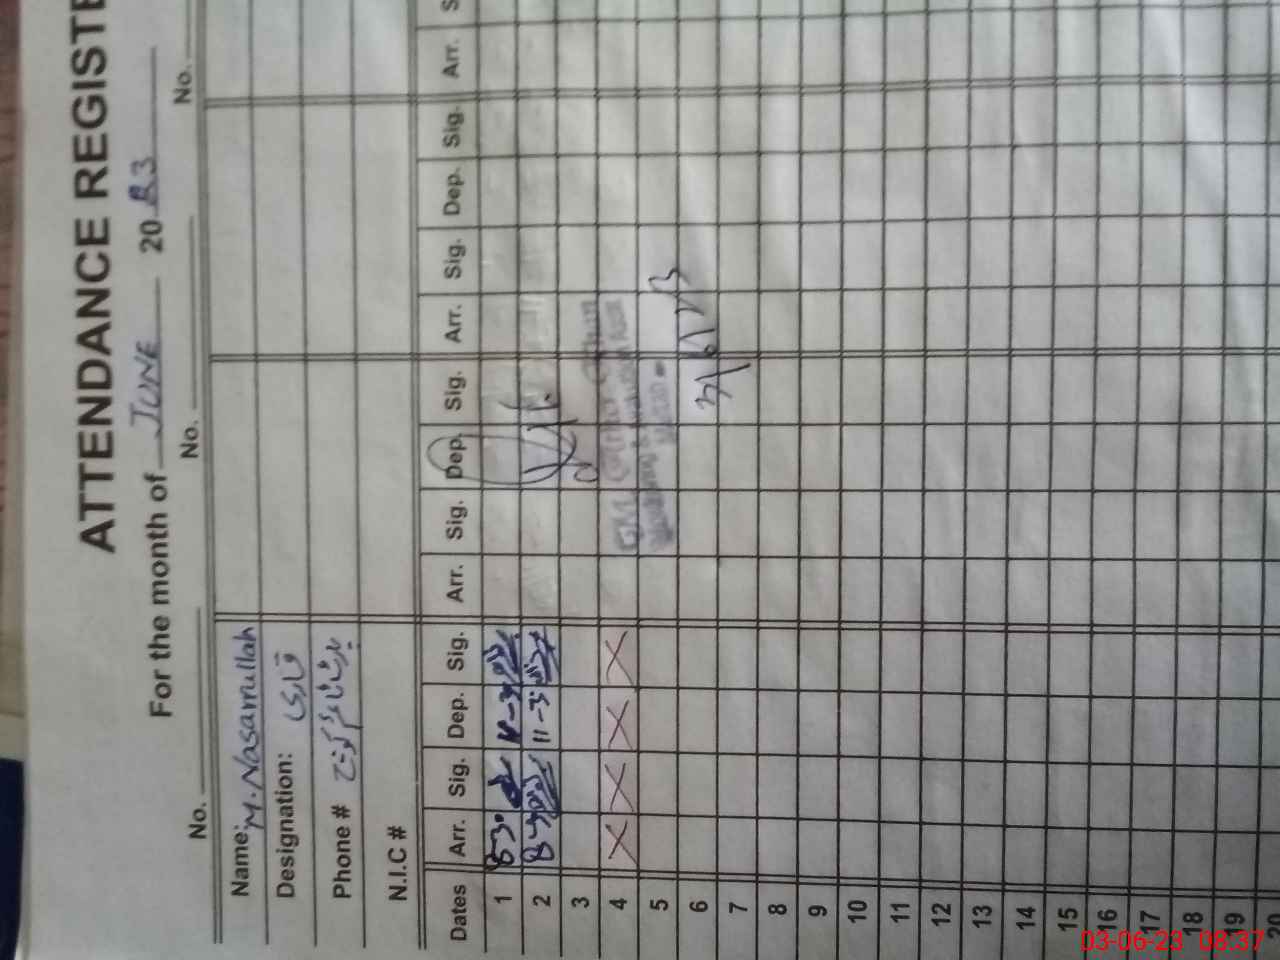 ATTENDANCE REGISTE
For the month of JUNE 2023
No. No. No. No.
Name: M. Nasarrullah
Designation: قاری
Phone #
N.I.C #
Dates Arr. Sig. Dep. Sig. Arr. Sig. Dep. Sig. Arr. Sig. Dep. Sig. Arr. S
1 830
2 11-3
3
4 X X X X
5
6 3/6/23
7
8
9
10
11
12
13
14
15
16
17
18
19
20
03-06-23 08:37